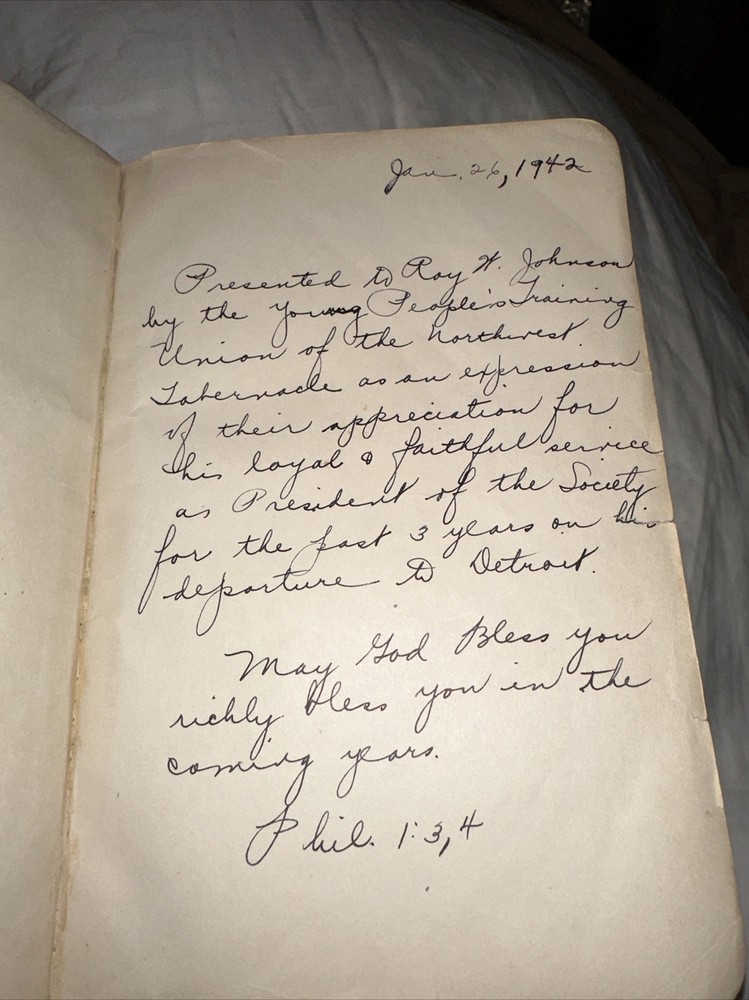 Jan. 26, 1942
Presented to Roy W. Johnson
by the Young People's Training
Union of the Northwest
Tabernacle as an expression
of their appreciation for
his loyal & faithful service
as President of the Society
for the past 3 years on his
departure to Detroit.
May God Bless you
richly bless you in the
coming years.
Phil. 1:3,4